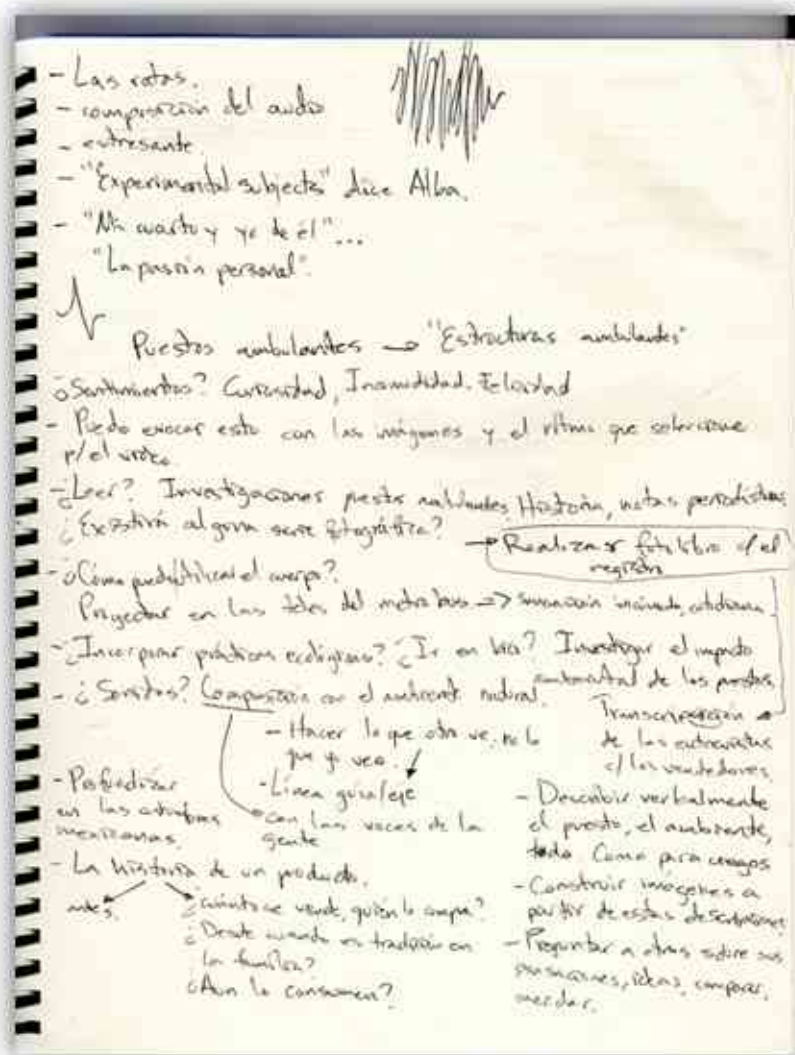 - Las ratas.
- composición del audio
- estresante
- "Experimental subjects" dice Alba.
- "Mi cuarto y yo de él"...
"La pasión personal".
Puestos ambulantes → "Estructuras ambulantes"
¿Sentimientos? Curiosidad, Incomodidad. Felicidad
- Puedo evocar esto con las imágenes y el ritmo que seleccione
p/el video
- ¿Leer? Investigaciones puestos ambulantes, Historia, notas periodísticas
¿Existirá alguna serie fotográfica?
→ Realizar fotolibro c/el
registro
- ¿Cómo puedo utilizar el cuerpo?
Proyectar en las teles del metrobus → cotidiana
- ¿Incorporar prácticas ecológicas? ¿Ir en bici? Investigar el impacto
ambiental de los puestos
- ¿Sonidos? Composición con el ambiente natural.
Transcripción
de las entrevistas
c/los vendedores
- Hacer lo que otro ve, no lo
que yo veo.
- Línea guía/eje
con las voces de la
gente
- Profundizar
en las
mexicanas.
- La historia de un producto.
antes.
¿cuánto se vende, quién lo compra?
¿Desde cuando es tradición en
la familia?
¿Aun lo consumen?
- Describir verbalmente
el puesto, el ambiente,
todo. Como para ciegos
- Construir imágenes a
partir de estas descripciones
- Preguntar a otros sobre sus
sensaciones, ideas, comparar,
mezclar.